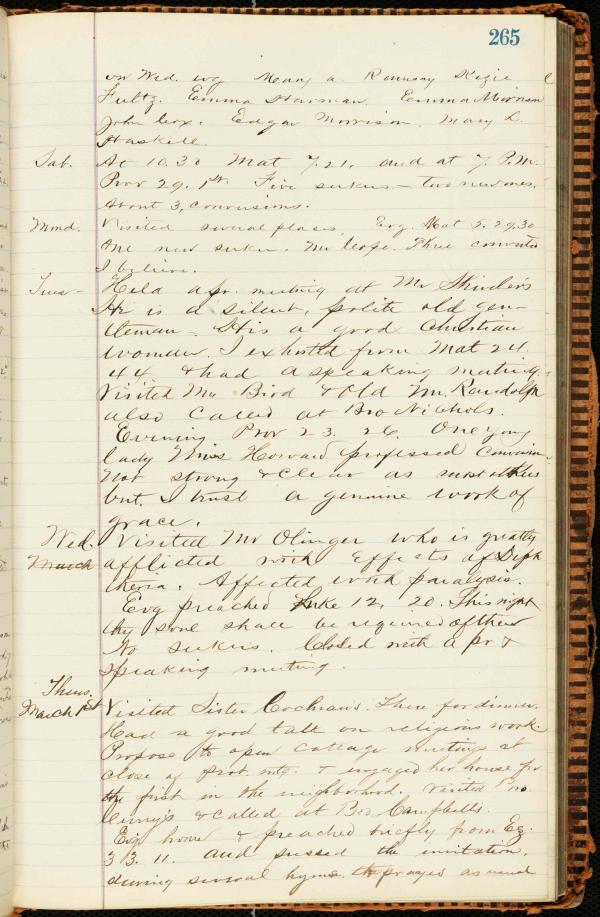 265
on Wed. evg Mary A. Ramsay Kizie
Fultz. Emma Harman Emma Morrison
John Cox. Edgar Morrison. Mary L.
Haskell.
Sat. At 10.30 Mat 7.21. and at 7 P.M.
Prov 29. 1st. Five seekers – two new ones,
About 3, conversions.
Mond. Visited several places. Evg. Mat 5. 29.30
One new seeker. Mr Three converts
I believe.
Tues – Held a pr. meeting at Mr Shinder's
He is a silent, polite old gen-
tleman – His a good Christian
woman. I exhorted from Mat 24.
44 & had a speaking meeting.
Visited Mr Bird & Old Mr. Randolph
also called at Bro Nichols.
Evening Prov 23. 26. One young
lady Miss Howard professed conversion
Not strong & clear as most others
but I trust a genuine work of
grace.
Wed. Visited Mr Olinger who is greatly
March afflicted with effects of Diph
theria. Affected with paralysis.
Evg preached Luke 12, 20. This night
thy soul shall be required of thee
No seekers. Closed with a pr &
speaking meeting.
Thurs.
March 1st Visited Sister Cochran's. There for dinner.
Had a good talk on religious work.
Propose to open cottage meetings at
close of prot. mtg. & engaged her house for
the first in the neighborhood. Visited Bro.
& called at Bro Campbells.
Evg home & preached briefly from Ez.
33. 11. and pressed the invitation.
during several hyms. & prayed as usual